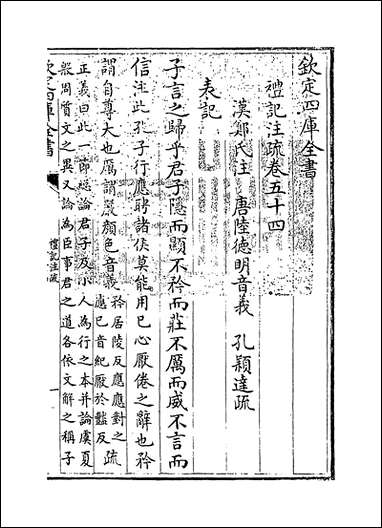 欽定四庫全書
禮記注疏卷五十四
漢鄭氏注 唐陸德明音義 孔穎達疏
表記
子言之歸乎君子隱而顯不矜而莊不厲而威不言而
信注此孔子行應聘諸侯莫能用已心厭倦之辭也矜
謂自尊大也厲謂嚴顔色音義
矜居陵反應應對之
應已音紀厭於豔反
疏
正義曰此一節總論君子及小人為行之本并論虞夏
殷周質文之異又論為臣事君之道各依文解之稱子
欽定四庫全書
禮記注疏
一